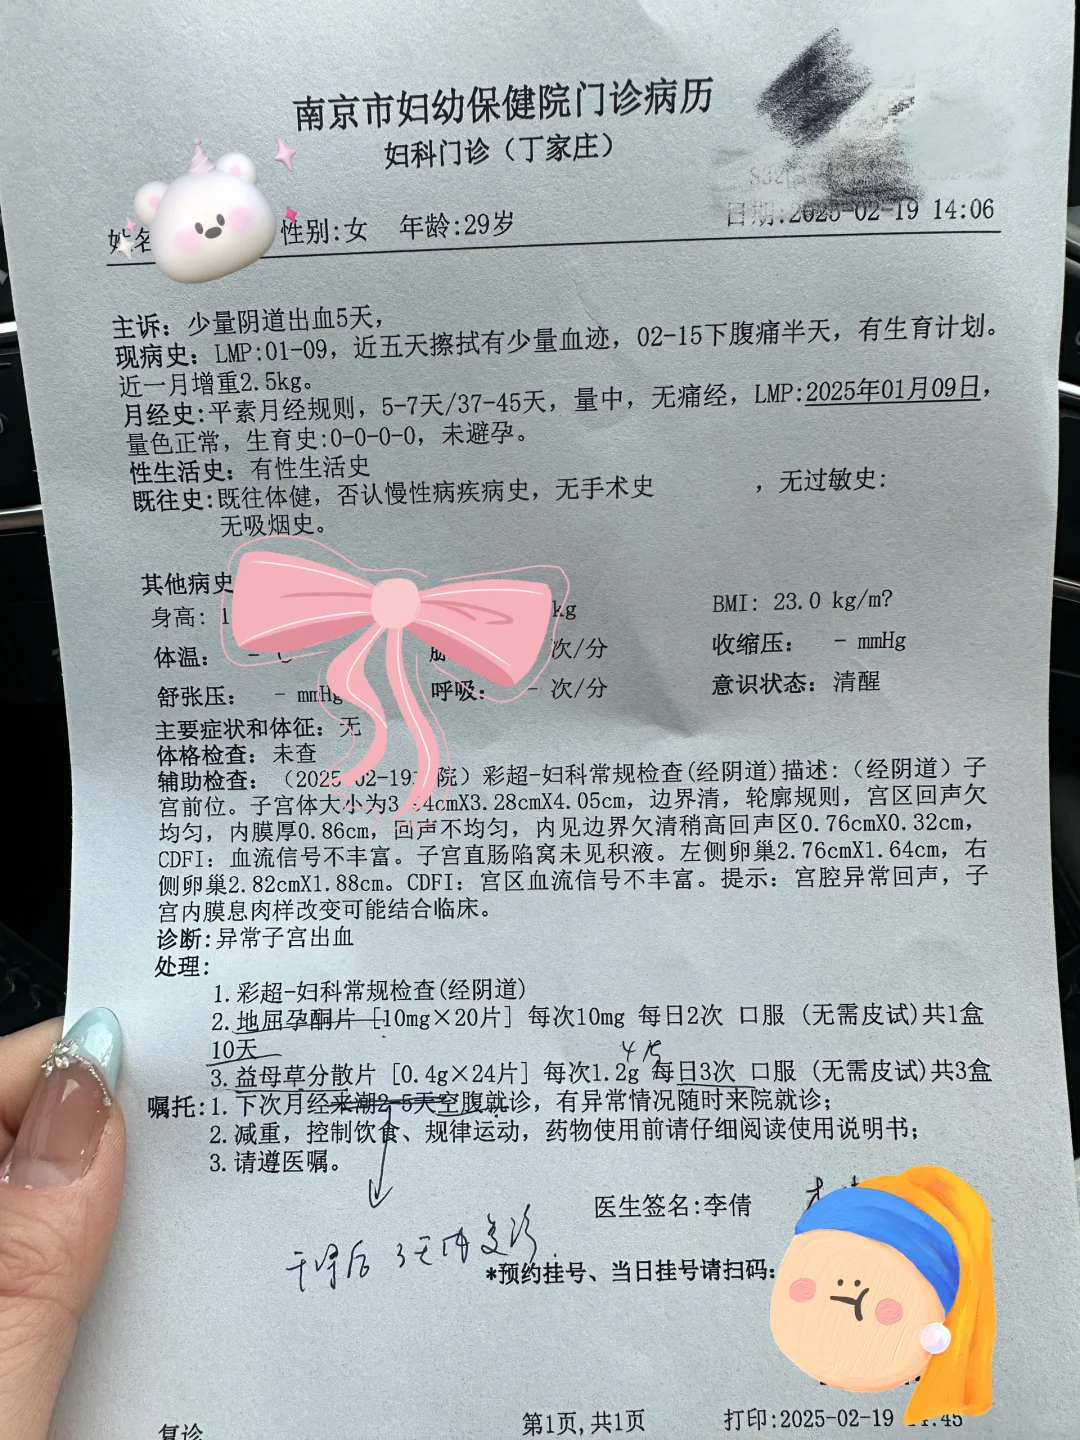 南京市妇幼保健院门诊病历
妇科门诊（丁家庄）
性别:女 年龄:29岁 日期:2025-02-19 14:06
主诉：少量阴道出血5天，
现病史：LMP:01-09，近五天擦拭有少量血迹，02-15下腹痛半天，有生育计划。
近一月增重2.5kg。
月经史:平素月经规则，5-7天/37-45天，量中，无痛经，LMP:2025年01月09日，
量色正常，生育史:0-0-0-0，未避孕。
性生活史：有性生活史
既往史:既往体健，否认慢性病疾病史，无手术史 ，无过敏史:
无吸烟史。
其他病史
身高: 1 kg BMI: 23.0 kg/m?
体温： - 次/分 收缩压： - mmHg
舒张压： - mmHg 呼吸： - 次/分 意识状态：清醒
主要症状和体征：无
体格检查：未查
辅助检查：（2025-02-19 院）彩超-妇科常规检查(经阴道)描述:（经阴道）子
宫前位。子宫体大小为3. 4cmX3.28cmX4.05cm，边界清，轮廓规则，宫区回声欠
均匀，内膜厚0.86cm，回声不均匀，内见边界欠清稍高回声区0.76cmX0.32cm，
CDFI：血流信号不丰富。子宫直肠陷窝未见积液。左侧卵巢2.76cmX1.64cm，右
侧卵巢2.82cmX1.88cm。CDFI：宫区血流信号不丰富。提示：宫腔异常回声，子
宫内膜息肉样改变可能结合临床。
诊断:异常子宫出血
处理:
1.彩超-妇科常规检查(经阴道)
2.地屈孕酮片 [10mg×20片] 每次10mg 每日2次 口服 (无需皮试)共1盒
10天
4片
3.益母草分散片 [0.4g×24片] 每次1.2g 每日3次 口服 (无需皮试)共3盒
嘱托:1.下次月经来潮2-5天空腹就诊，有异常情况随时来院就诊；
2.减重，控制饮食、规律运动，药物使用前请仔细阅读使用说明书；
3.请遵医嘱。
医生签名:李倩
干净后 3天内复诊
*预约挂号、当日挂号请扫码:
复诊 第1页,共1页 打印:2025-02-19 :45